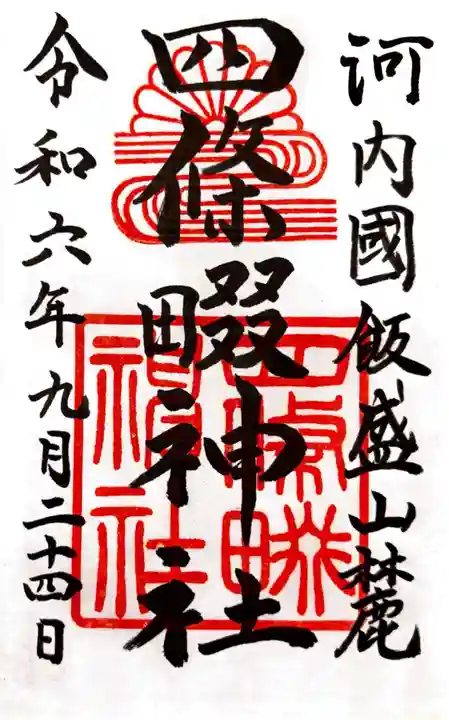 河内國飯盛山麓
四條畷神社
四條畷神社
令和六年九月二十四日